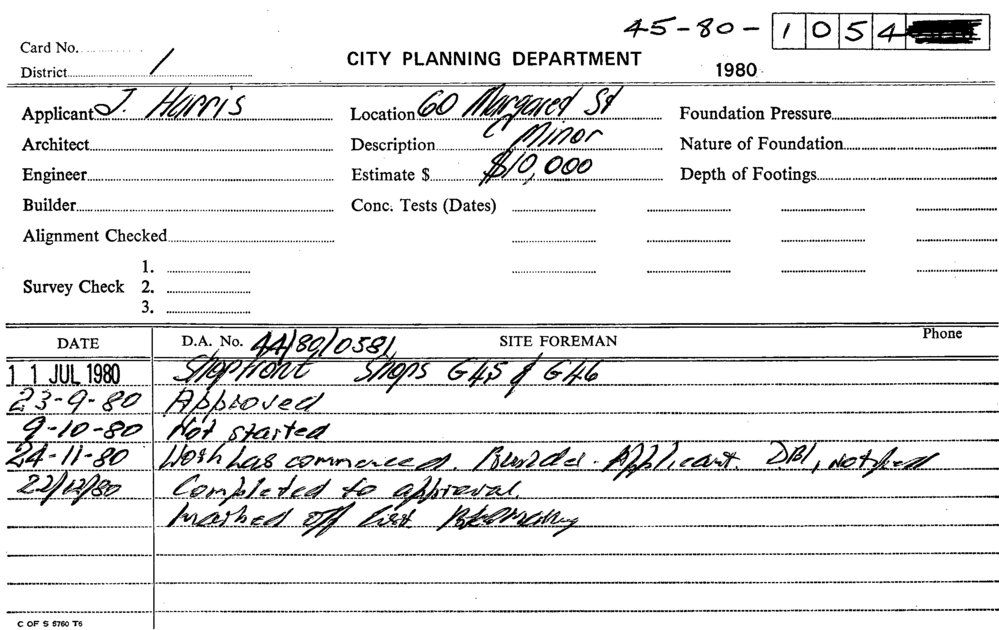 45-80- 1054
Card No.
CITY PLANNING DEPARTMENT
District 1
1980
Applicant J. Harris Location 60 Margaret St Foundation Pressure
Architect Description Minor Nature of Foundation
Engineer Estimate $ $10,000 Depth of Footings
Builder Conc. Tests (Dates)
Alignment Checked
1.
Survey Check 2.
3.
DATE D.A. No. 44/80/0581 SITE FOREMAN Phone
11 JUL 1980 Shopfront Shops G45 & G46
23-9-80 Approved
9-10-80 Not started
24-11-80 Work has commenced. Builder - Applicant. DBI, notified
22/12/80 Completed to approval.
Marked off list
C OF S 5760 T6